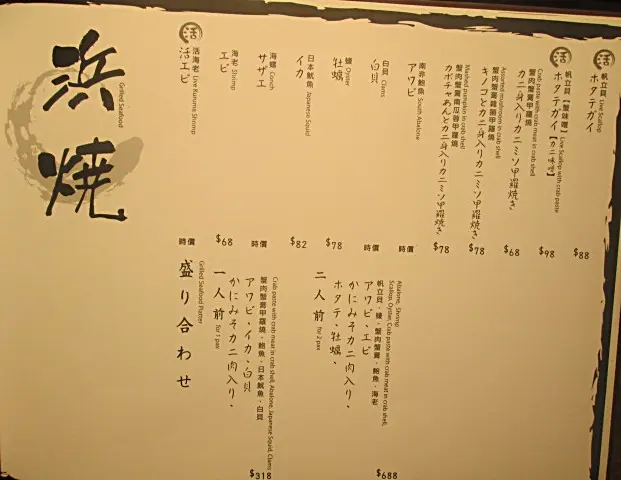 浜焼
Grilled Seafood
活
活エビ
活海老 Live Kuruma Shrimp
時價
エビ
海老 Shrimp
$68
サザエ
海螺 Conch
時價
イカ
日本魷魚 Japanese Squid
$82
牡蠣
蠔 Oyster
$78
白貝
白貝 Clams
時價
アワビ
南非鮑魚 South Abalone
時價
カボチャあんとカニ身入りカニミソ甲羅焼き
蟹肉蟹膏南瓜蓉甲羅燒
Mashed pumpkin in crab shell
$78
キノコとカニ身入りカニミソ甲羅焼き
蟹肉蟹膏雜菌甲羅燒
Assorted mushroom in crab shell
$78
カニ身入りカニミソ甲羅焼き
Crab paste with crab meat in crab shell
$68
活
ホタテガイ【カニ味噌】
帆立貝【蟹味噌】 Live Scallop with crab paste
$98
活
ホタテガイ
帆立貝 Live Scallop
$88
盛り合わせ
Grilled Seafood Platter
一人前 for 1 pax
かにみそカニ肉入り、
アワビ、イカ、白貝
蟹肉蟹膏甲羅燒、鮑魚、日本魷魚、白貝
Crab paste with crab meat in crab shell, Abalone, Japanese Squid, Clams
$318
二人前 for 2 pax
ホタテ、牡蠣、
かにみそカニ肉入り、
アワビ、エビ
帆立貝、蠔、蟹肉蟹膏、鮑魚、海老
Scallop, Oyster, Crab paste with crab meat in crab shell,
Abalone, Shrimp
$688